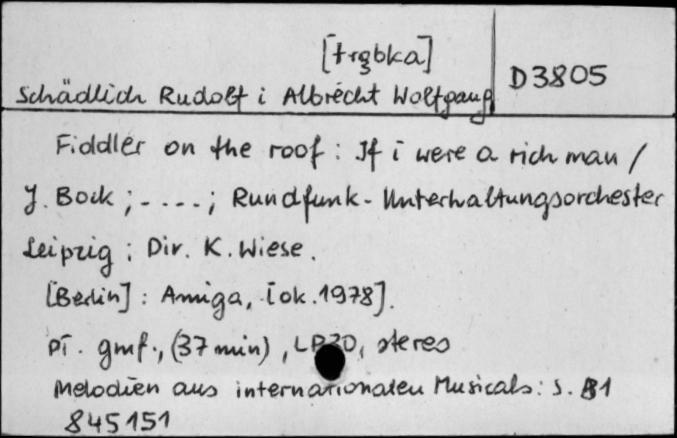 [trąbka]
D3805
Schädlich Rudolf i Albrecht Wolfgang
Fiddler on the roof : If i were a rich man /
J. Bock ; - . . . . ; Rundfunk - Unterhaltungsorchester
Leipzig ; Dir. K. Wiese.
[Berlin] : Amiga, [ok. 1978].
pł. gmf., (37 min), LP30, stereo
Melodien aus internationalen Musicals : s. B1
845151